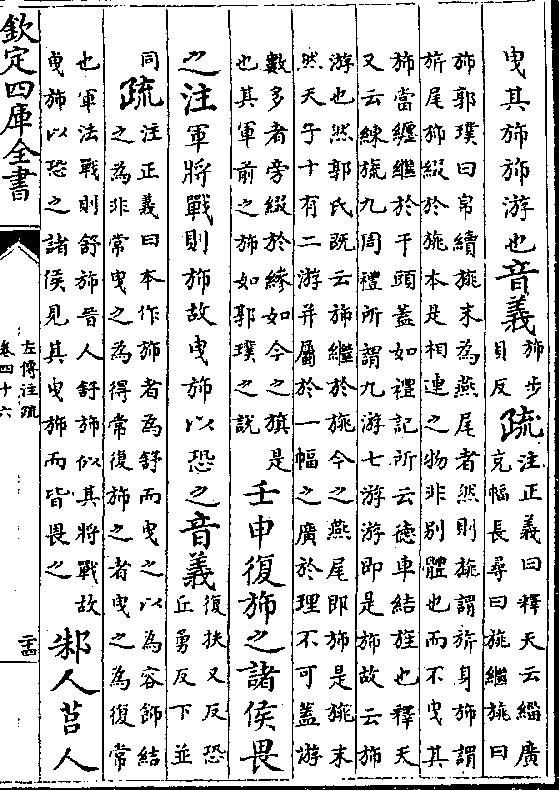 曳其斾斾游也音義斾步
貝反疏注正義曰釋天云緇廣
充幅長尋曰旐繼旐曰
斾郭璞曰帛續旐末為燕尾者然則旐謂旂身斾謂
旂尾斾綴於旐本是相連之物非别體也而不曳其
斾當纏繼於干頭蓋如禮記所云徳車結旌也釋天
又云練旒九周禮所謂九游七游游即是斾故云斾
游也然郭氏既云斾繼於旐今之燕尾即斾是旐末
然天子十有二游并屬於一幅之廣於理不可蓋游
數多者旁綴於縁如今之旗是
也其軍前之斾如郭璞之說
壬申復斾之諸侯畏
之注軍將戰則斾故曳斾以恐之音義復扶又反恐
丘勇反下並
同疏注正義曰本作斾者為舒而曳之以為容飾結
之為非常曳之為得常復斾之者曳之為復常
也軍法戰則舒斾晉人舒斾似其將戰故
曳斾以恐之諸侯見其曳斾而皆畏之
邾人莒人
欽定四庫全書
左傳注疏
卷四十六